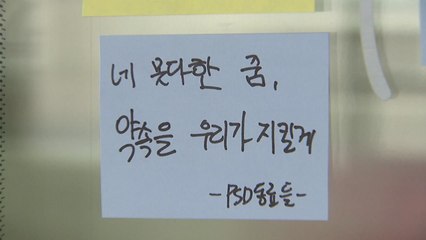 네 못다한 꿈,
약속을 우리가 지킬게
-PSD동료들-